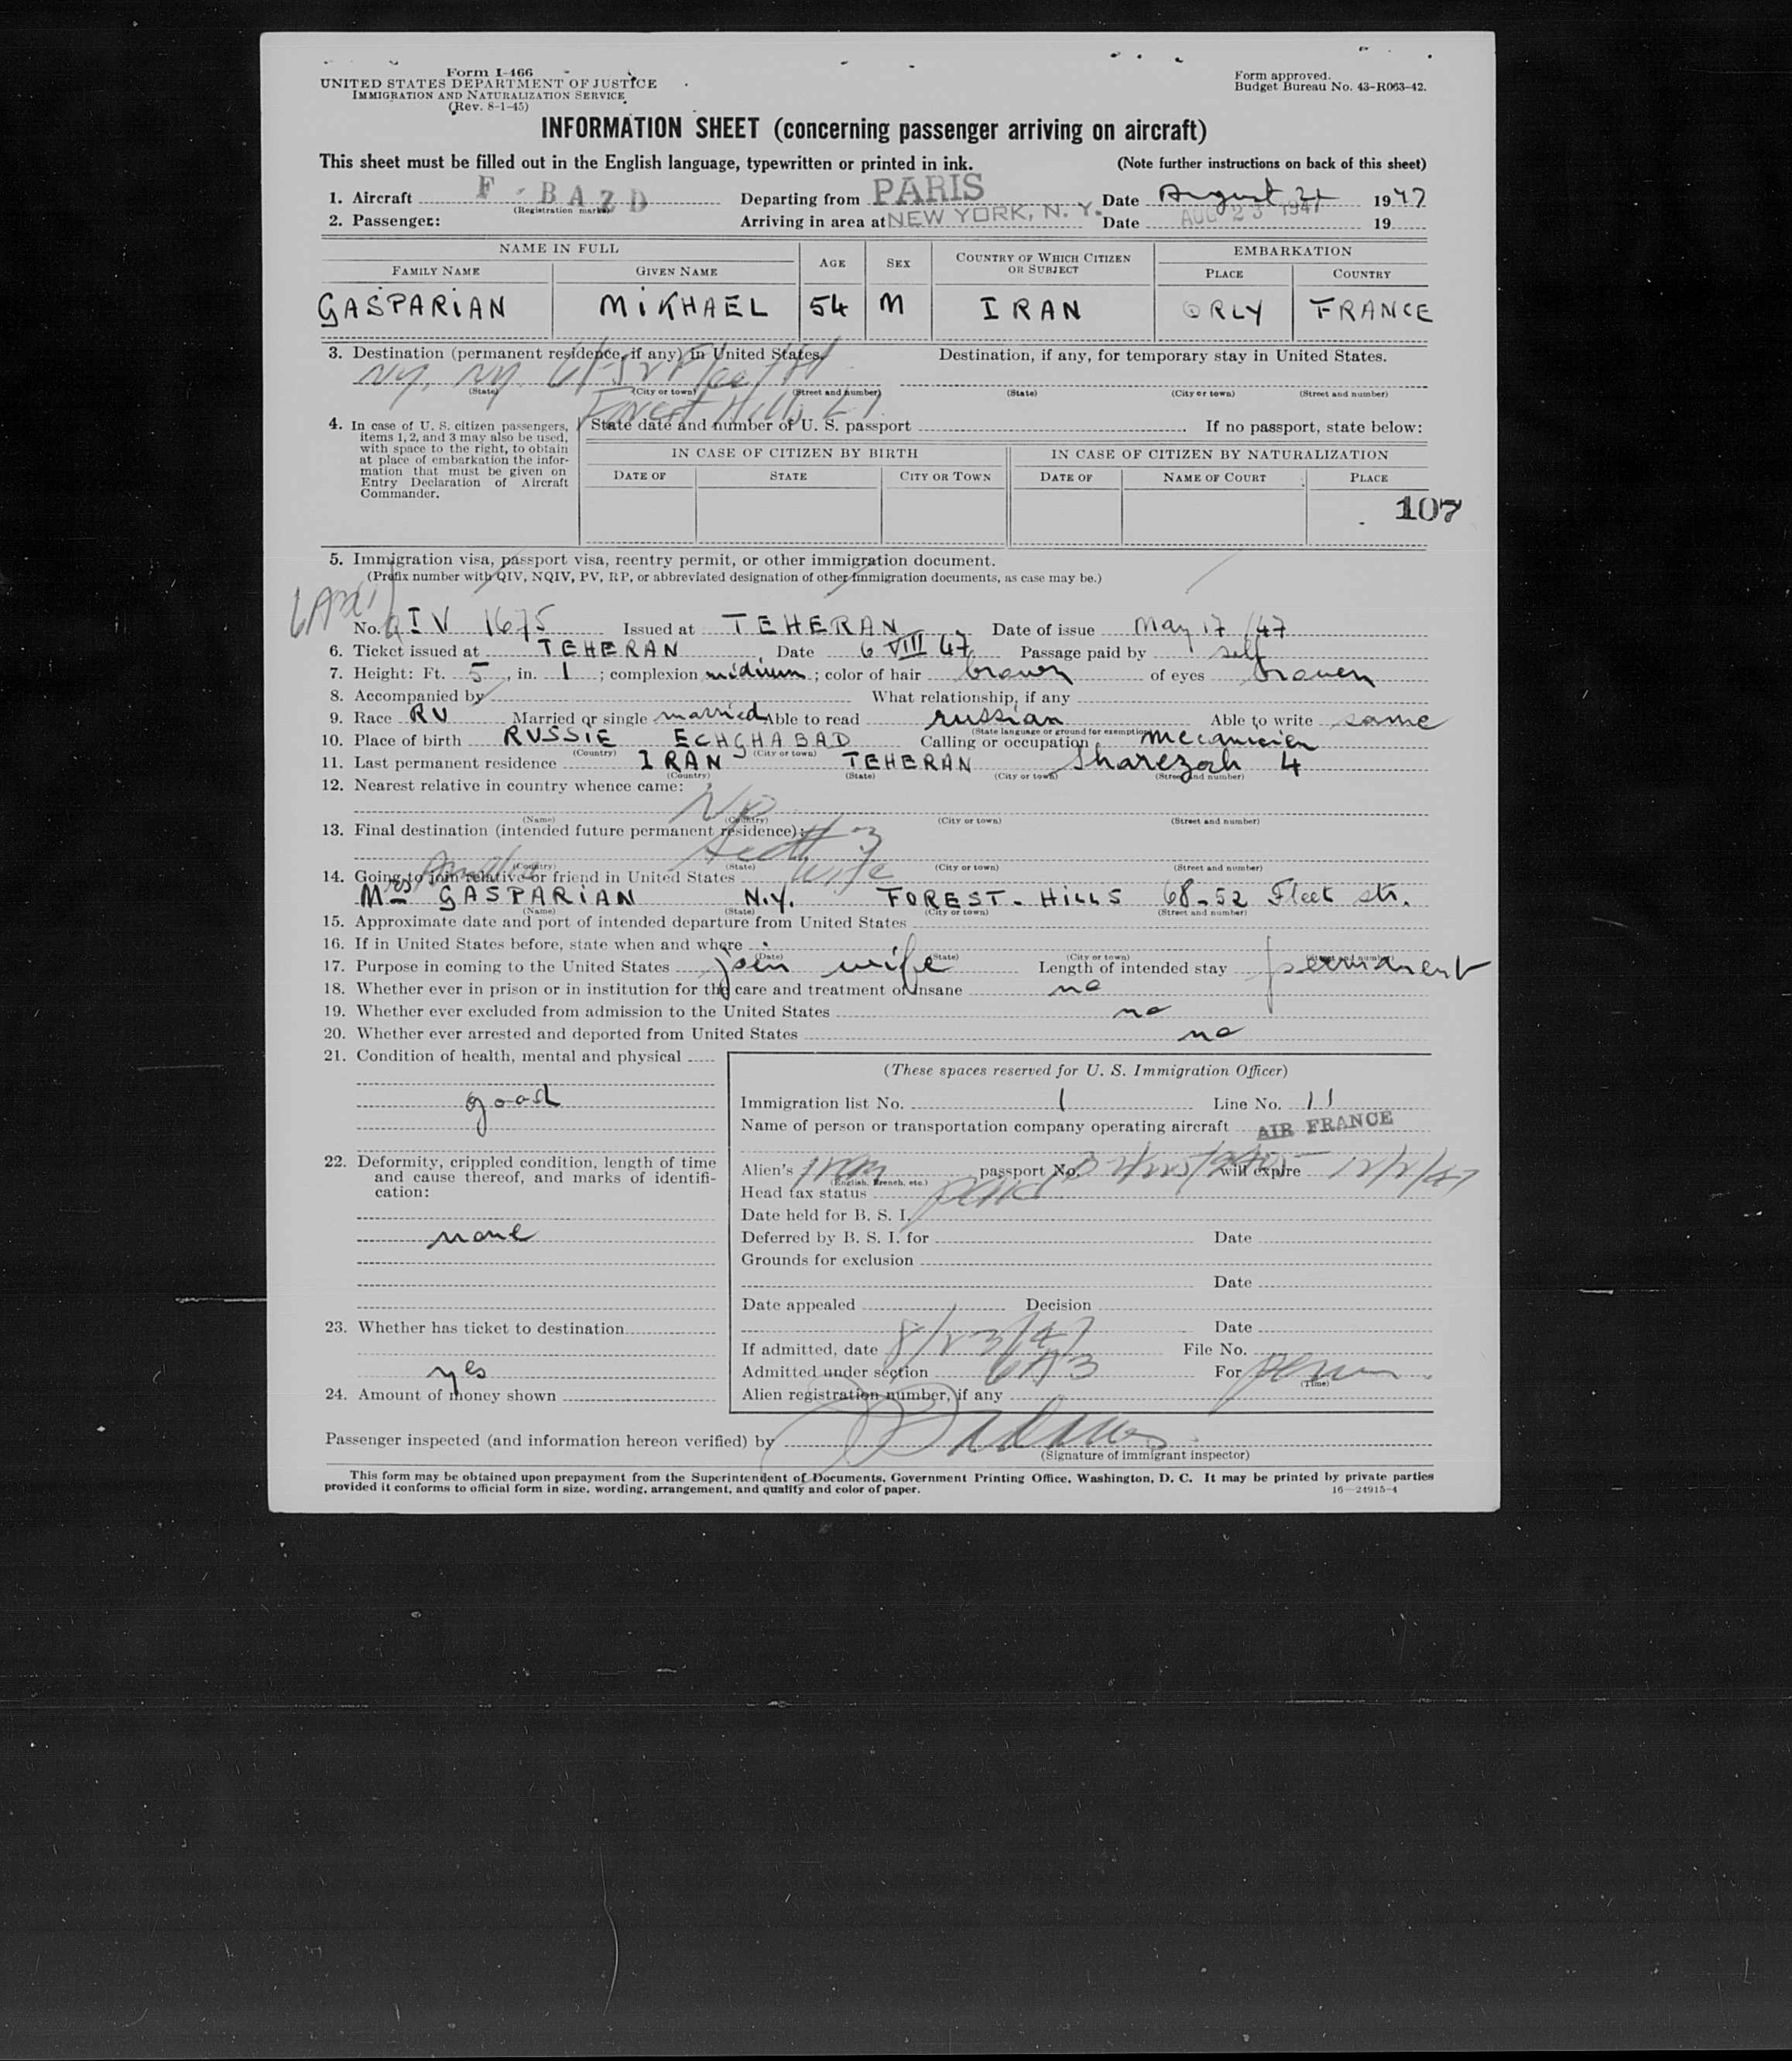 Form I-466
UNITED STATES DEPARTMENT OF JUSTICE
IMMIGRATION AND NATURALIZATION SERVICE
(Rev. 8-1-45)
Form approved.
Budget Bureau No. 43-R063-42.
INFORMATION SHEET (concerning passenger arriving on aircraft)
This sheet must be filled out in the English language, typewritten or printed in ink. (Note further instructions on back of this sheet)
1. Aircraft F-BAZD Departing from PARIS Date August 21 1947
(Registration marks)
2. Passenger: Arriving in area at NEW YORK, N. Y. Date AUG 23 1947 19
NAME IN FULL AGE SEX COUNTRY OF WHICH CITIZEN OR SUBJECT EMBARKATION
FAMILY NAME GIVEN NAME PLACE COUNTRY
GASPARIAN MIKHAEL 54 M IRAN ORLY FRANCE
3. Destination (permanent residence, if any) in United States. Destination, if any, for temporary stay in United States.
NY, NY.
(State) (City or town) (Street and number) (State) (City or town) (Street and number)
Forest Hills
4. In case of U. S. citizen passengers, items 1, 2, and 3 may also be used, with space to the right, to obtain at place of embarkation the information that must be given on Entry Declaration of Aircraft Commander.
State date and number of U. S. passport If no passport, state below:
IN CASE OF CITIZEN BY BIRTH IN CASE OF CITIZEN BY NATURALIZATION
DATE OF STATE CITY OR TOWN DATE OF NAME OF COURT PLACE
107
5. Immigration visa, passport visa, reentry permit, or other immigration document.
(Prefix number with QIV, NQIV, PV, RP, or abbreviated designation of other immigration documents, as case may be.)
No. QIV 1675 Issued at TEHERAN Date of issue May 17 /47
6. Ticket issued at TEHERAN Date 6 VIII 47 Passage paid by self
7. Height: Ft. 5, in. 1; complexion midium; color of hair brown of eyes brouen
8. Accompanied by What relationship, if any
9. Race RU Married or single married Able to read russian Able to write same
(State language or ground for exemption)
10. Place of birth RUSSIE ECHGHABAD Calling or occupation mecanicien
(Country) (City or town)
11. Last permanent residence IRAN TEHERAN Sharezah 4
(Country) (State) (City or town) (Street and number)
12. Nearest relative in country whence came:
No
(Name) (Country) (City or town) (Street and number)
13. Final destination (intended future permanent residence):
(Country) (State) (City or town) (Street and number)
14. Going to join relative or friend in United States wife
Mrs GASPARIAN N.Y. FOREST-HILLS 68-52 Fleet str.
(Name) (State) (City or town) (Street and number)
15. Approximate date and port of intended departure from United States
16. If in United States before, state when and where
(Date) (State) (City or town) (Street and number)
17. Purpose in coming to the United States join wife Length of intended stay permanent
18. Whether ever in prison or in institution for the care and treatment of insane no
19. Whether ever excluded from admission to the United States no
20. Whether ever arrested and deported from United States no
21. Condition of health, mental and physical
good
22. Deformity, crippled condition, length of time and cause thereof, and marks of identification:
none
23. Whether has ticket to destination
yes
24. Amount of money shown
(These spaces reserved for U. S. Immigration Officer)
Immigration list No. 1 Line No. 11
Name of person or transportation company operating aircraft AIR FRANCE
Alien's Iran passport No. will expire 12/2/47
(English, French, etc.)
Head tax status paid
Date held for B. S. I.
Deferred by B. S. I. for Date
Grounds for exclusion
Date
Date appealed Decision
Date
If admitted, date 8/23/47 File No.
Admitted under section 6A3 For perm
(Time)
Alien registration number, if any
Passenger inspected (and information hereon verified) by
(Signature of immigrant inspector)
This form may be obtained upon prepayment from the Superintendent of Documents, Government Printing Office, Washington, D. C. It may be printed by private parties
provided it conforms to official form in size, wording, arrangement, and quality and color of paper. 16—24915-4